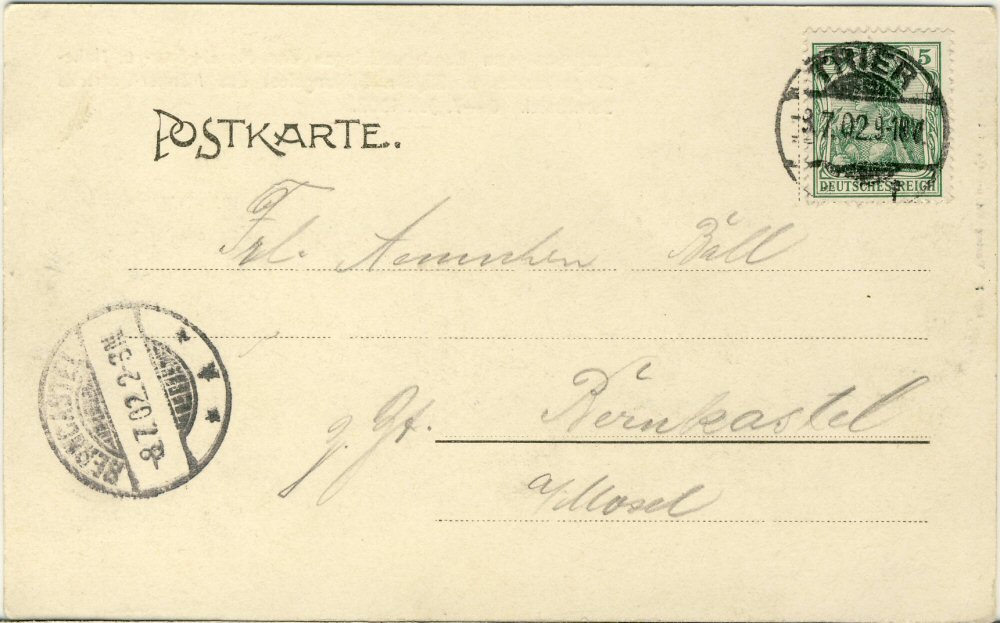 5
TRIER
8.7.02.9-10V.
DEUTSCHES REICH
POSTKARTE.
Frl. Aennchen Böll
BERNCASTEL
8.7.02.2-3N.
z. Zt. Bernkastel
a/Mosel